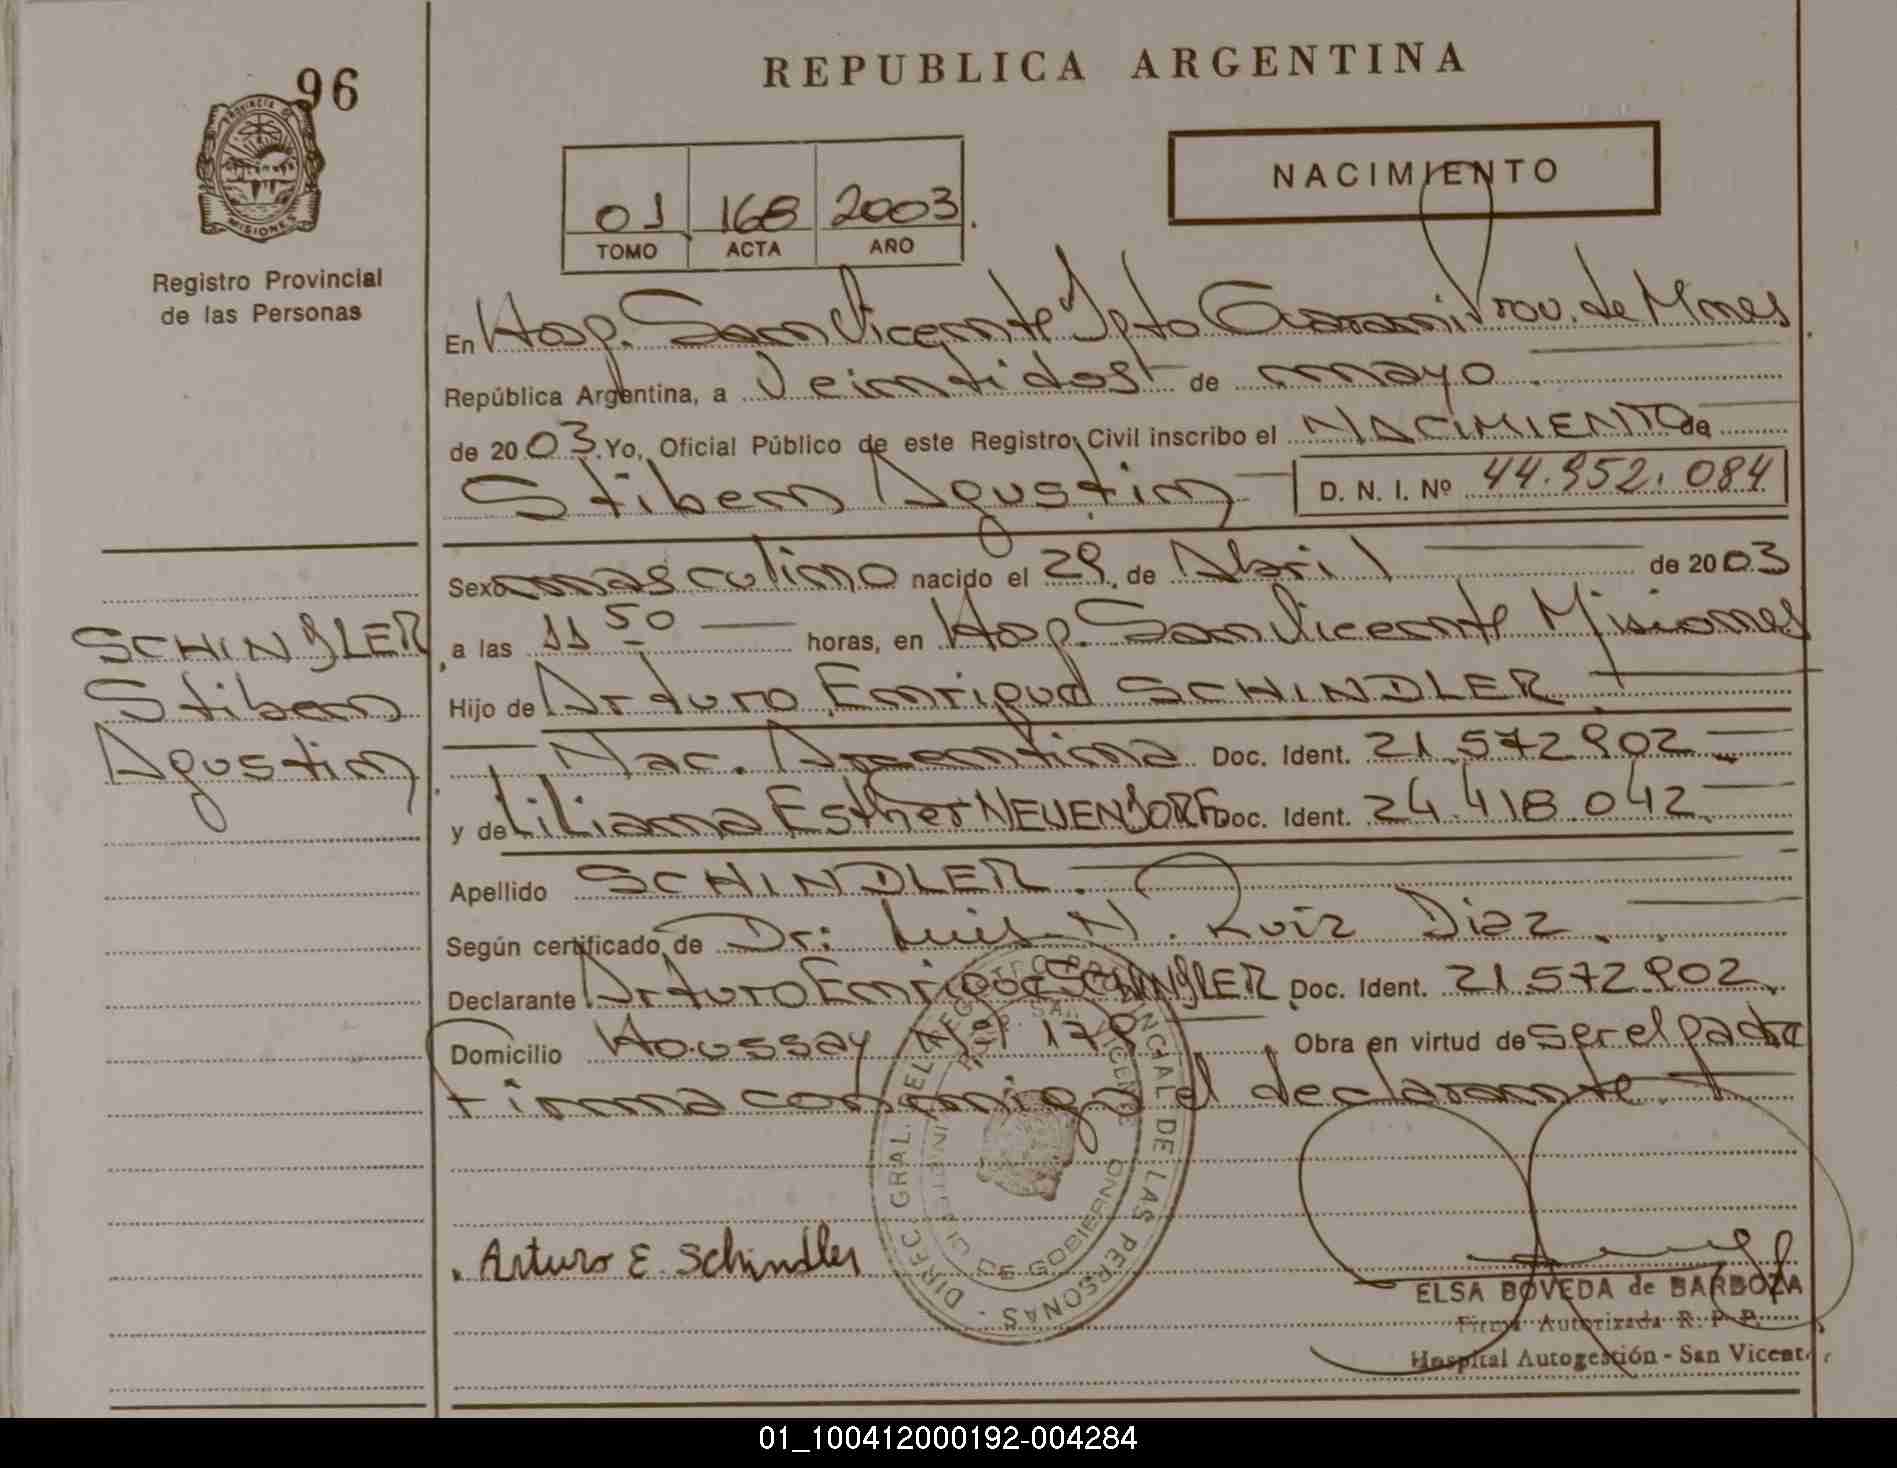 96
REPUBLICA ARGENTINA
PROVINCIA DE
MISIONES
Registro Provincial
de las Personas
01 168 2003
TOMO ACTA AÑO
NACIMIENTO
En Hosp. San Vicente Dpto Guarani Prov. de Mnes
República Argentina, a Veintidos de mayo
de 2003 Yo, Oficial Público de este Registro Civil inscribo el NACIMIENTO de
Stiben Agustin D. N. I. Nº 44.952.084
Sexo masculino nacido el 29 de Abril de 2003
SCHINDLER
Stiben
Agustin
a las 11 50 horas, en Hosp. San Vicente Misiones
Hijo de Arturo Enrique SCHINDLER
Nac. Argentina Doc. Ident. 21.572.902
y de Liliana Esther NEUENDORF Doc. Ident. 24.418.042
Apellido SCHINDLER.
Según certificado de Dr: Luis N. Ruiz Diaz.
Declarante Arturo Enrique SCHINDLER Doc. Ident. 21.572.902
Domicilio Houssay Nº 179 Obra en virtud de ser el padre
Firma conmigo el declarante.
DIREC. GRAL. DEL REGISTRO PROVINCIAL DE LAS PERSONAS
SAN VICENTE
DE GOBIERNO
Arturo E. Schindler
ELSA BOVEDA de BARBOZA
Firma Autorizada R. P. P.
Hospital Autogestión - San Vicente
01_100412000192-004284